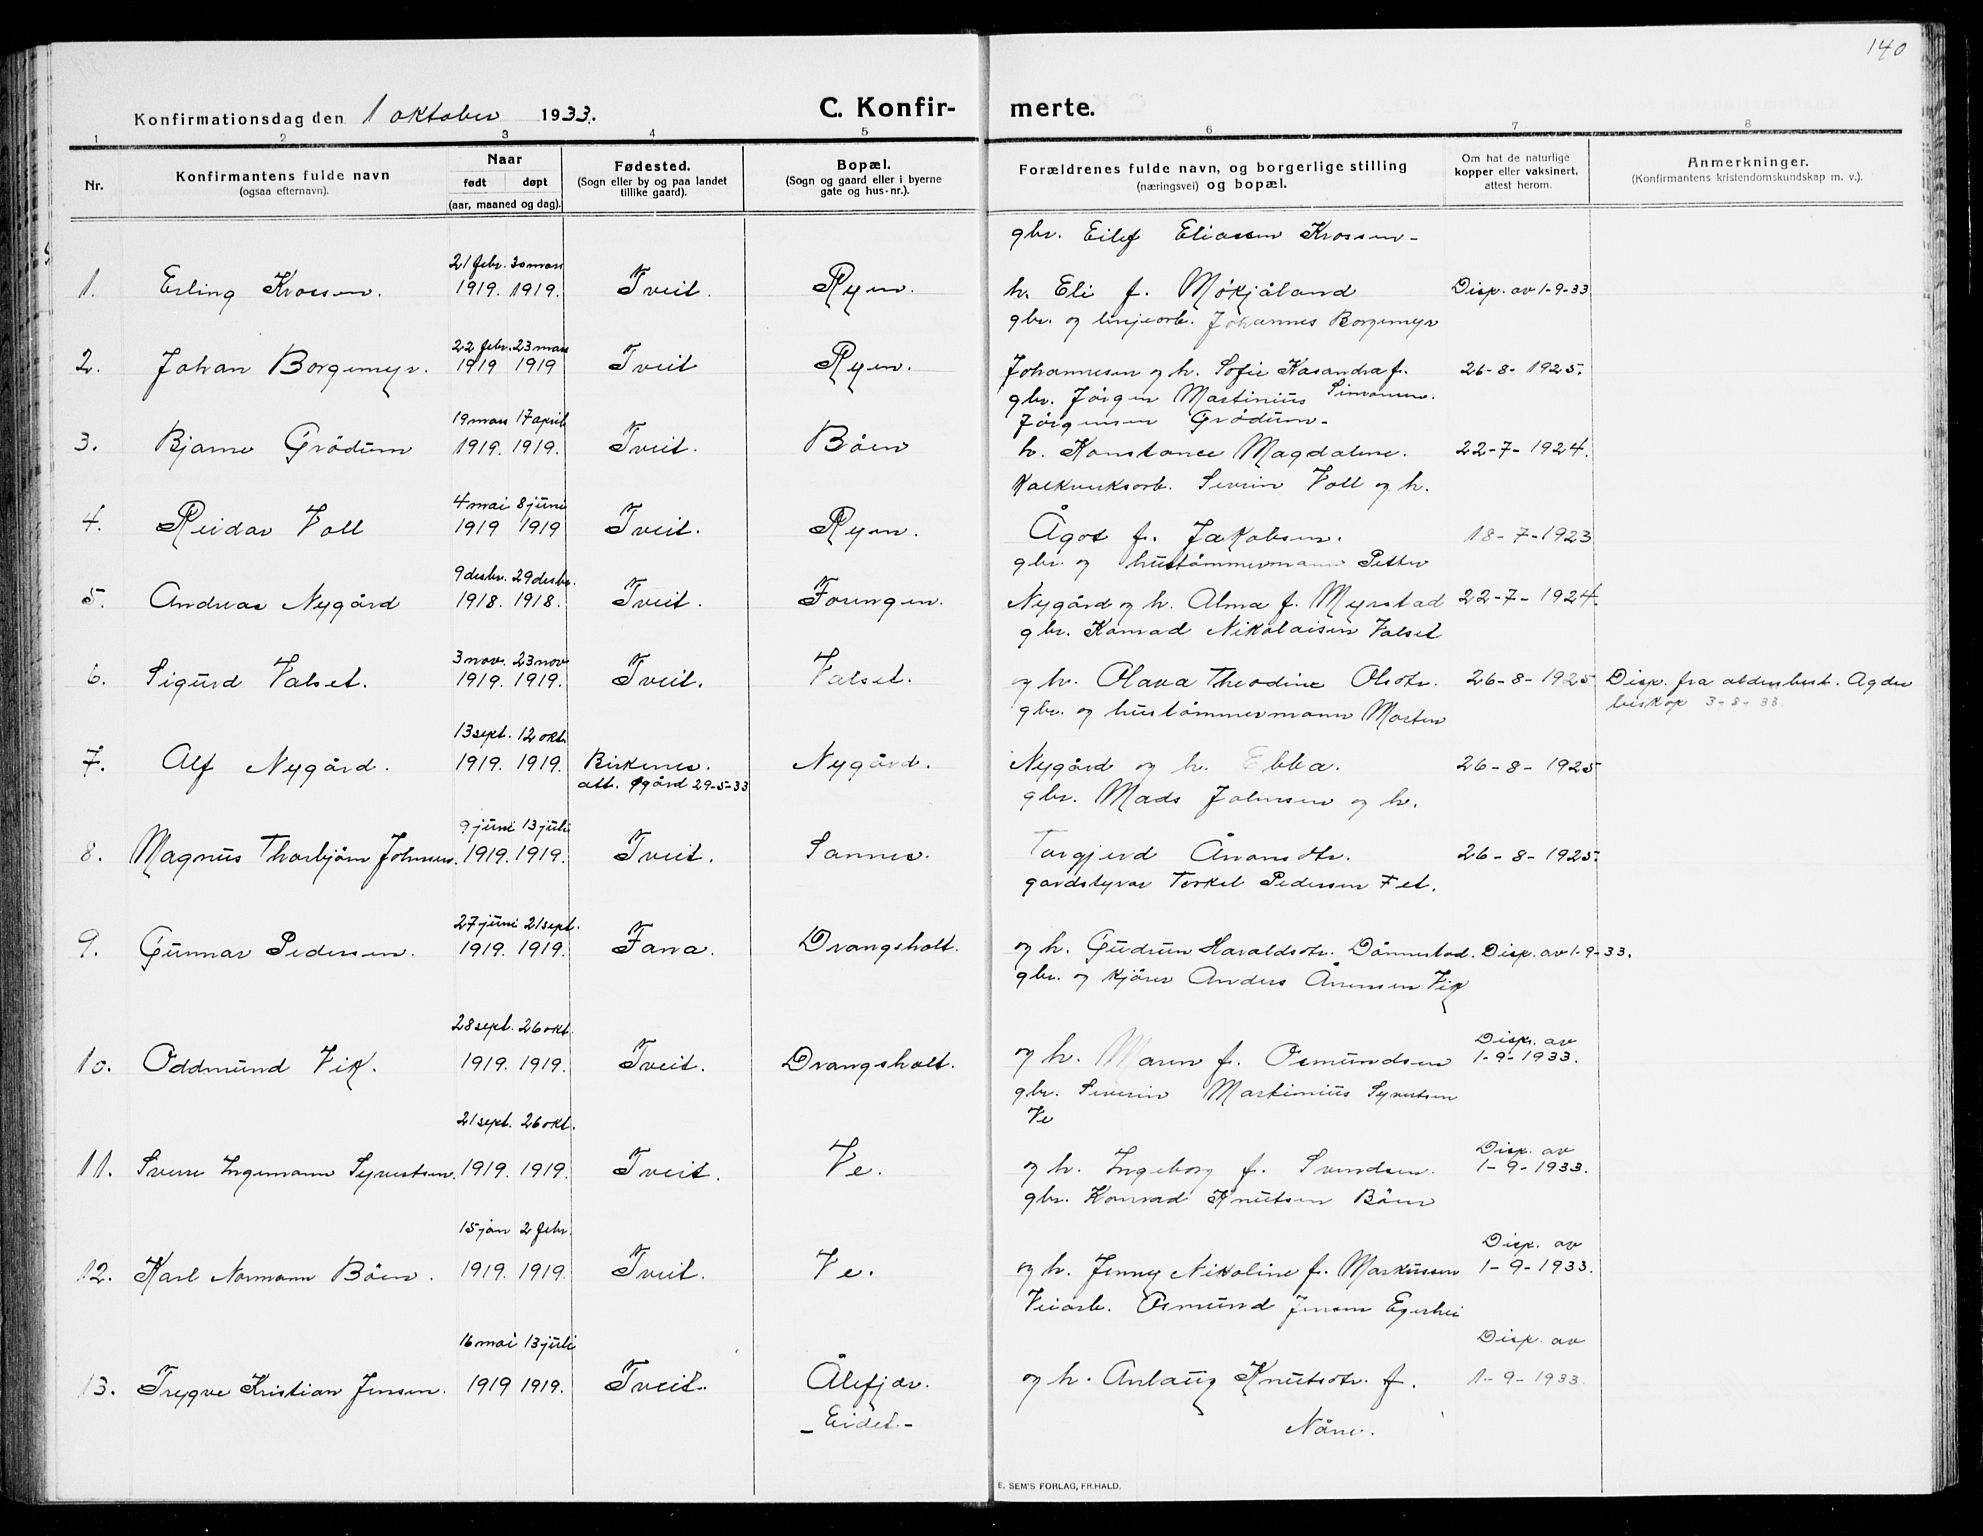 140
Konfirmationsdag den 1 oktober 1933.
C. Konfir- merte.
1 2 3 4 5 6 7 8
Nr.
Konfirmantens fulde navn
(ogsaa efternavn).
Naar
født døpt
(aar, maaned og dag).
Fødested.
(Sogn eller by og paa landet
tillike gaard).
Bopæl.
(Sogn og gaard eller i byerne
gate og hus-nr.).
Forældrenes fulde navn, og borgerlige stilling
(næringsvei) og bopæl.
Om hat de naturlige
kopper eller vaksinert,
attest herom.
Anmerkninger.
(Konfirmantens kristendomskundskap m. v.).
gbr. Eilef Eliassen Krossen -
21 febr. 30 mars
1. Erling Krossen. 1919. 1919. Tveit. Ryen. h. Eli f. Møkjåland Disp. av 1-9-33
gbr. og linjearb. Johannes Borgemyr
22 febr. 23 mars
2. Johan Borgemyr. 1919 1919 Tveit Ryen. Johannesen og h. Sofie Kasandra f. 26-8-1925.
Simonsen.
gbr. Jørgen Martinius
Jørgensen Grødum -
19 mars 17 april
3. Bjarne Grødum 1919. 1919. Tveit. Böen h. Konstance Magdalene. 22-7-1924.
Kalkverksarb. Severin Voll og h.
4 mai 8 juni
4. Reidar Voll 1919 1919 Tveit. Ryen. Ågot f. Jakobsen. 18-7-1923
gbr. og hustömmermann Petter
9 desbr. 29 desbr.
5. Andreas Nygård 1918. 1918. Tveit. Foringen. Nygård og h. Alma f. Myrstad 22-7-1924.
gbr. Konrad Nikolaisen Valset
3 nov. 23 nov
6. Sigurd Valset. 1919. 1919. Tveit. Valset. og h. Olava Theodine Olsdtr. 26-8-1925 Disp. fra aldersbest. Agder
biskop 3-8-33.
gbr. og hustömmermann Morten
13 sept. 12 okt.
7. Alf Nygård. 1919. 1919. Birkenes. Nygård. Nygård og h. Ebba. 26-8-1925
att. Øgård 29-5-33
gbr. Mads Johnsen og h.
9 juni 13 juli
8. Magnus Thorbjörn Johnsen. 1919. 1919. Tveit. Sannes. Torgjerd Åvansdtr. 26-8-1925.
gardstyrar Torkel Pedersen Fet.
27 juni 21 sept.
9. Gunnar Pedersen. 1919. 1919. Fana. Drangsholt. og h. Gudrun Haraldsdtr. Dönnestad. Disp. av 1-9-33.
gbr. og kjörer Anders Årensen Vik
28 sept. 26 okt.
10. Oddmund Vik. 1919. 1919. Tveit. Drangsholt. og h. Maren f. Osmundsen Disp. av
1-9-1933.
gbr. Severin Martinius Syvertsen
Ve
21 sept. 26 okt.
11. Sverre Ingemann Syvertsen. 1919. 1919. Tveit. Ve. og h. Ingeborg f. Svendsen. Disp. av
1-9-1933.
gbr. Konrad Knutsen Böen
15 jan 2 febr.
12. Karl Normann Böen. 1919. 1919. Tveit. Ve. og h. Jenny Nikoline f. Markussen Disp. av
1-9-1933.
Veiarb. Osmund Jensen Egerhei
16 mai 13 juli
13. Trygve Kristian Jensen. 1919 1919. Tveit. Ålefjær. og h. Anlaug Knutsdtr. f. Disp. av
1-9-1933.
- Eidet. - Nåne.
E. SEM'S FORLAG, FR.HALD.